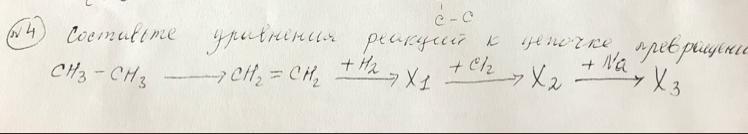 C - C
№4 Составьте уравнения реакций к цепочке превращени
CH3 - CH3 ⟶ CH2 = CH2 +H2⟶ X1 +Cl2⟶ X2 +Na⟶ X3